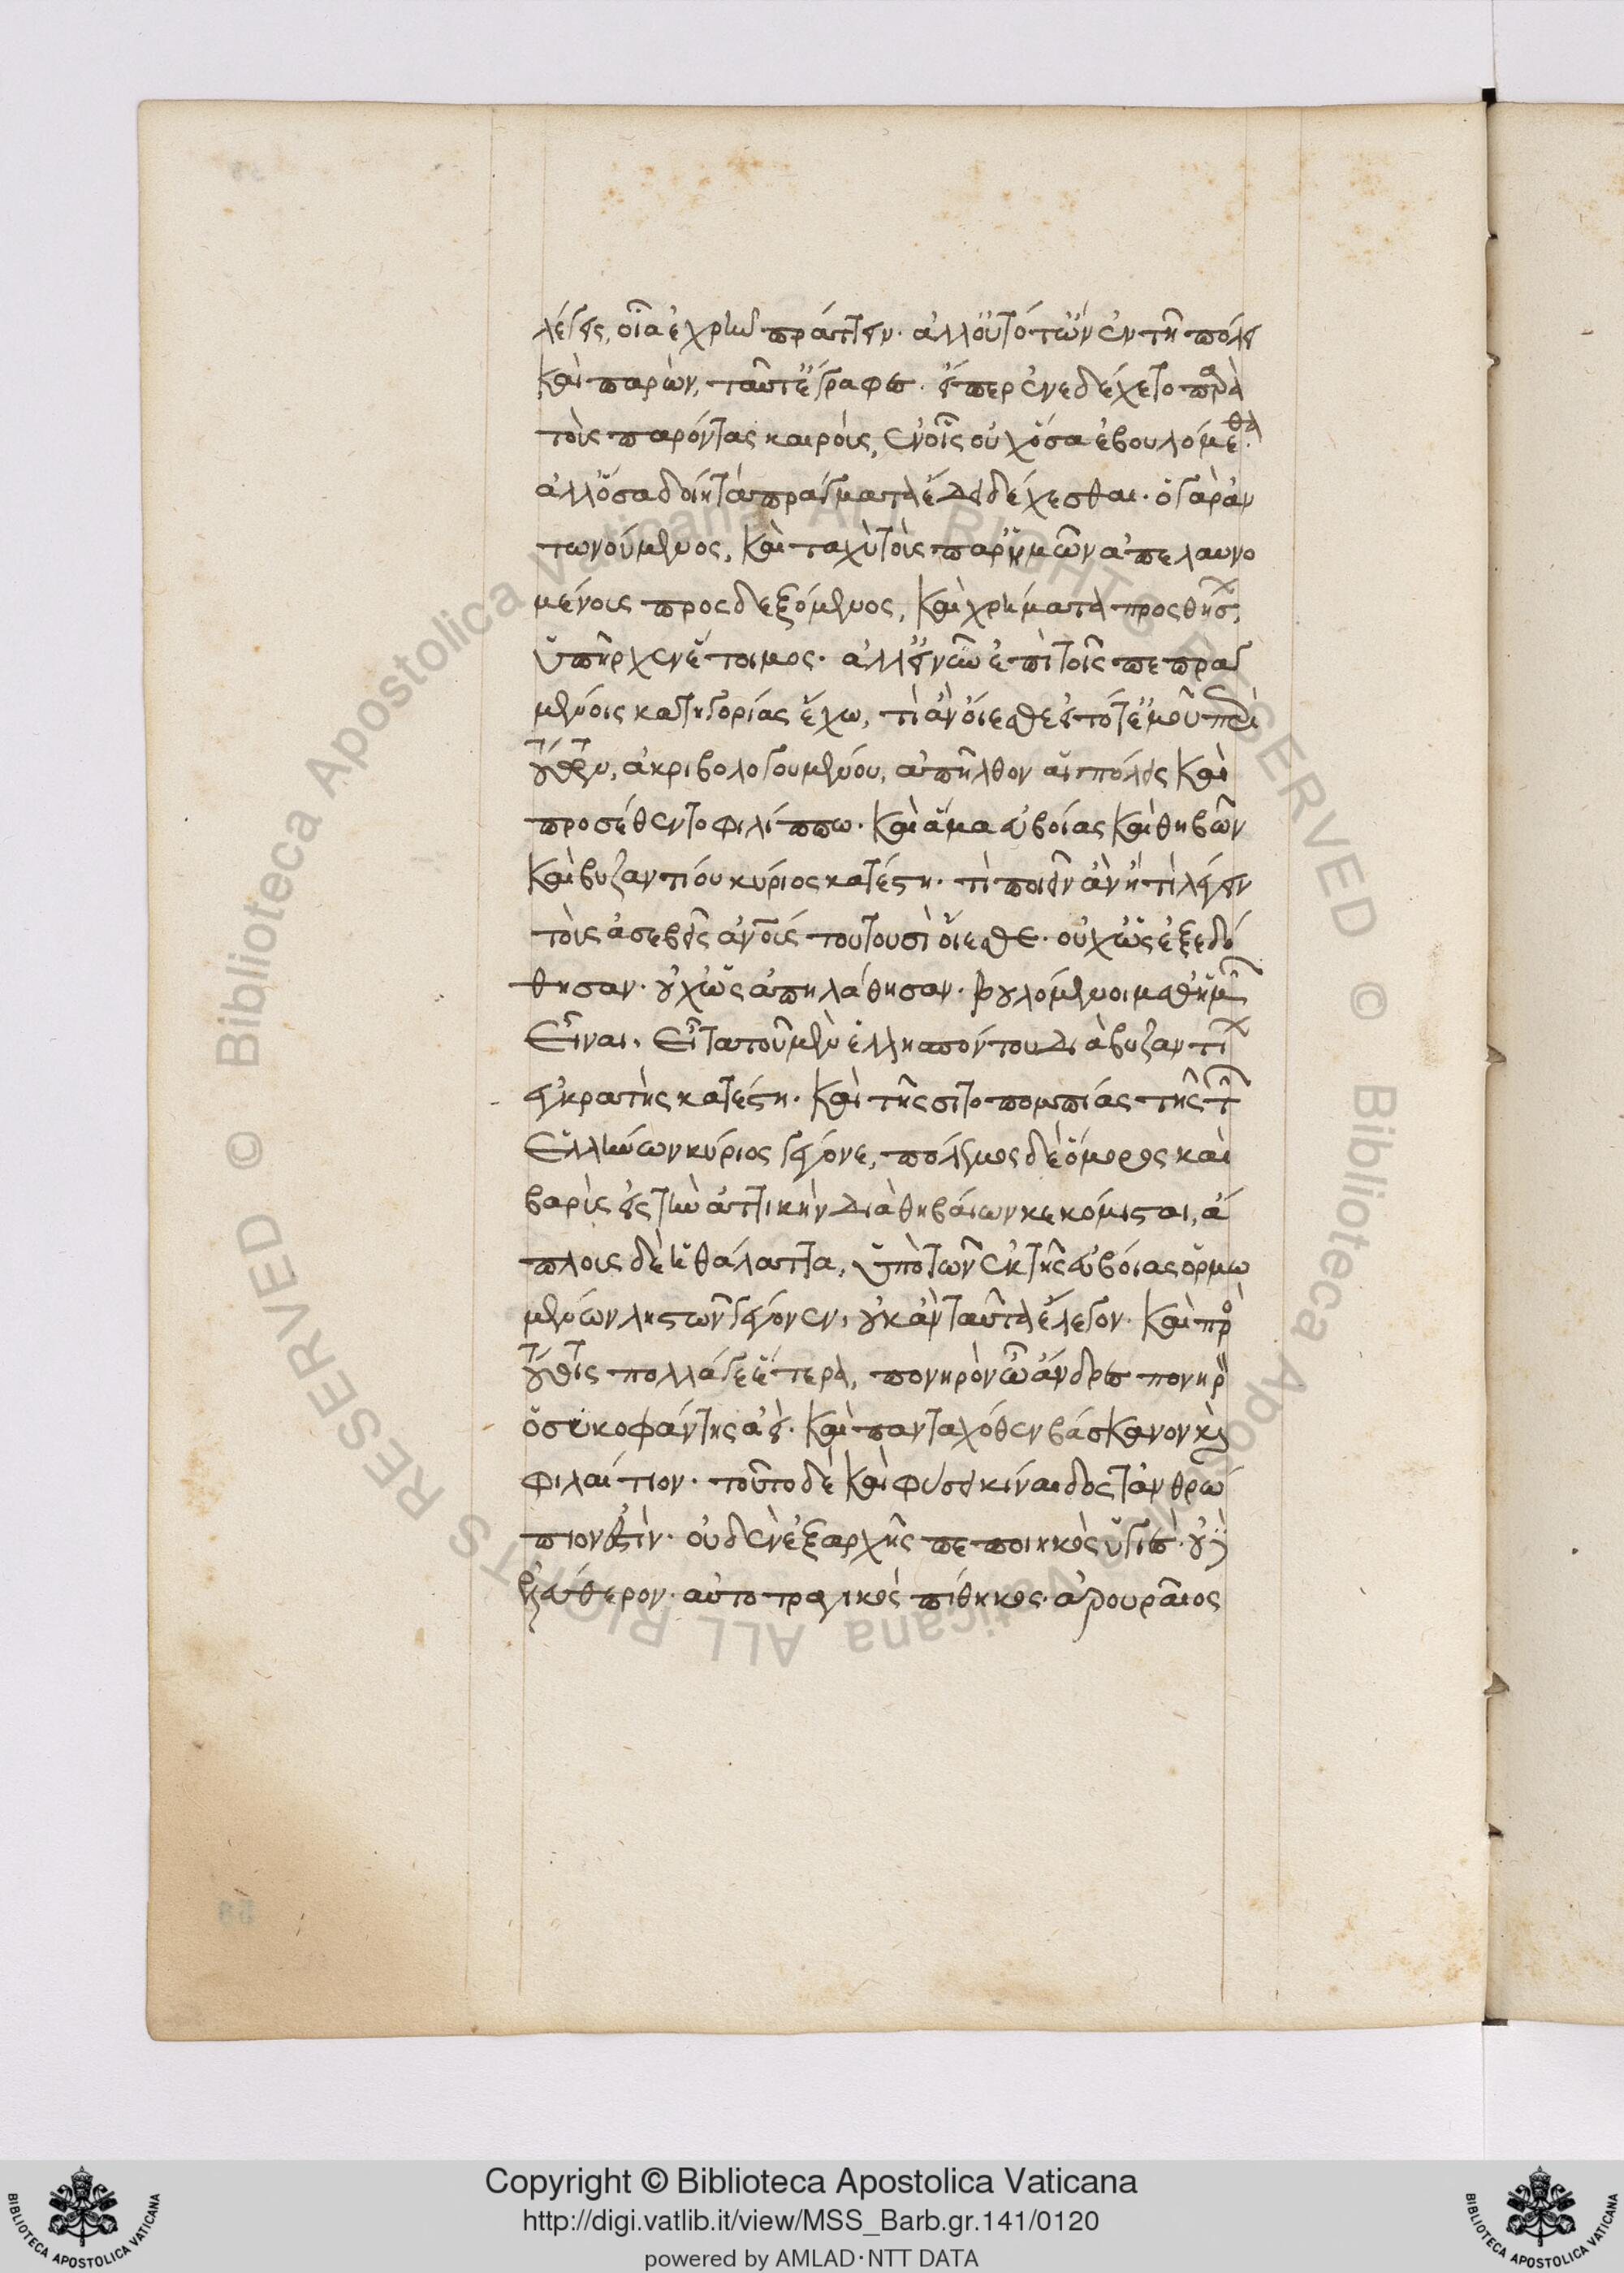 λέγεις, οἷα ἐχρῆν πράττειν. ἀλλ' οὔτ' ὁ τῶν ἐν τῆ πόλει
καὶ παρὼν, ταῦτ' ἔγραφεν. εἴπερ ἐνεδέχετο παρὰ
τοὺς παρόντας καιροὺς, ἐν οἷς οὐχ ὅσα ἐβουλόμεθα.
ἀλλ' ὅσα δοίη τὰ πράγματα ἔδει δέχεσθαι. ὁ γὰρ ἀν
τωνούμενος, καὶ ταχὺ τοὺς παρ' ἡμῶν ἀπελαυνο
μένους προσδεξόμενος, καὶ χρήματα προσθήσων,
ὑπῆρχεν ἕτοιμος. ἀλλ' εἰ νῦν ἐπὶ τοῖς πεπραγ
μένοις κατηγορίας ἔχω, τί ἂν οἴεσθε εἰ τότ' ἐμοῦ περὶ
τούτων, ἀκριβολογουμένου, ἀπῆλθον αἱ πόλεις καὶ
προσέθεντο φιλίππω. καὶ ἅμα εὐβοίας καὶ θηβῶν
καὶ βυζαντίου κύριος κατέστη. τί ποιεῖν ἂν ἢ τί λέγειν
τοὺς ἀσεβεῖς ἀνους τουτουσὶ οἴεσθε. οὐχ ὡς ἐξεδό
θησαν. οὐχ ὡς ἀπηλάθησαν. βουλόμενοι μεθ' ἡμῶν
Εἶναι. Εἶτα τοῦ μὲν ἑλλησπόντου διὰ βυζαντίων
ἐγκρατὴς κατέστη. καὶ τῆς σιτοπομπίας τῆς τῶν
Ἑλλήνων κύριος γέγονε, πόλεμος δὲ ὅμορος καὶ
βαρὺς εἰς τὴν ἀττικὴν διὰ θηβαίων κεκόμισται, ἄ
πλους δὲ ἡ θάλαττα, ὑπὸ τῶν ἐκ τῆς εὐβοίας ὁρμω
μένων ληστῶν γέγονεν, οὐκ ἂν ταῦτα ἔλεγον. καὶ πρὸς
τούτοις πολλά γε ἕτερα, πονηρὸν ὦ ἄνδρες πονηρὸν
ὁ συκοφάντης ἀεί. καὶ πανταχόθεν βάσκανον καὶ
φιλαίτιον. τοῦτο δὲ καὶ φύσει κίναιδος τἀνθρώ
πιόν ἐστιν. οὐδὲν ἐξαρχῆς πεποιηκὸς ὑγιὲς. οὐδ'
ἐλεύθερον. αὐτοτραγικὸς πίθηκος. ἀρουραῖος
Copyright © Biblioteca Apostolica Vaticana
http://digi.vatlib.it/view/MSS_Barb.gr.141/0120
powered by AMLAD·NTT DATA